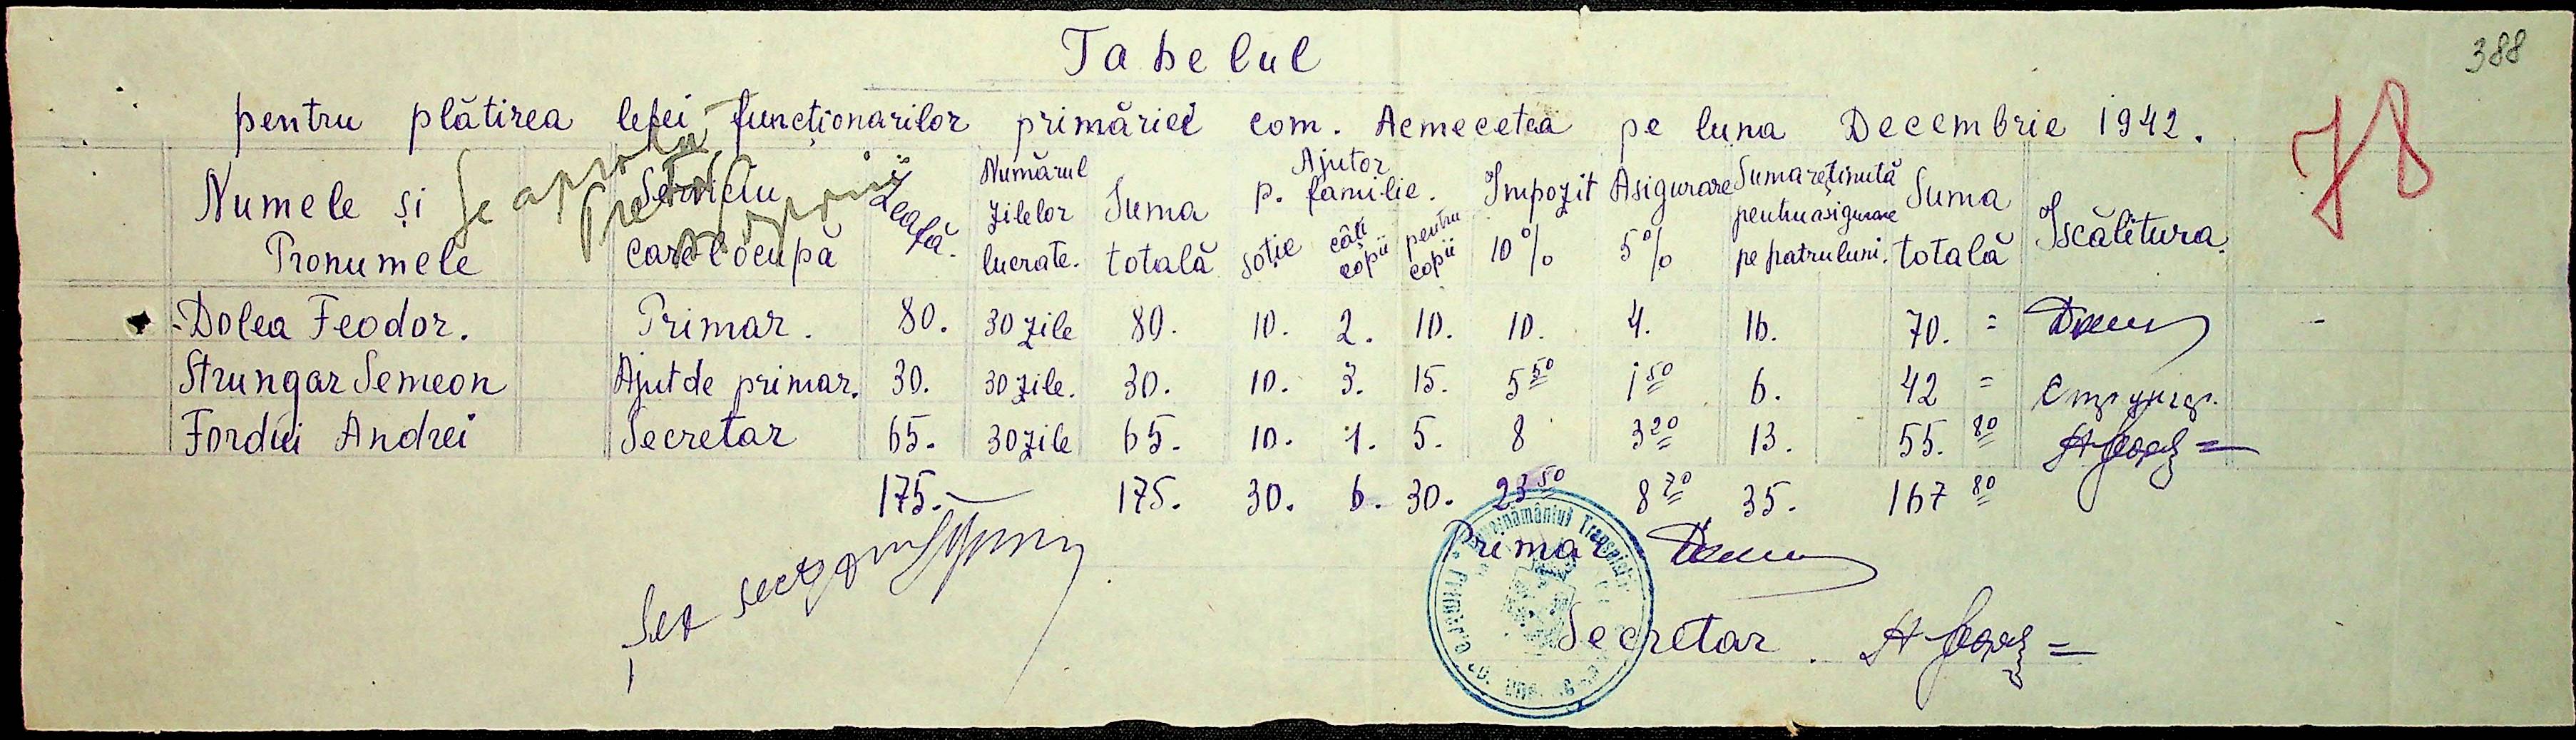 388
Tabelul
pentru plătirea lefei funcționarilor primăriei com. Acmecetca pe luna Decembrie 1942.
78
Se aprobă
Pretor
Numele și Pronumele Serviciu care l ocupă Leafă. Numărul zilelor lucrate. Suma totală Ajutor p. familie. soție câți copii pentru copii Impozit 10% Asigurare 5% Suma reținută pentru asigurare pe patru luni. Suma totală Iscălitura
Dolea Feodor. Primar. 80. 30 zile 80. 10. 2. 10. 10. 4. 16. 70. =
Strungar Semeon Ajut de primar. 30. 30 zile. 30. 10. 3. 15. 5 50 1 50 6. 42 =
Forduі Andrei Secretar 65. 30 zile 65. 10. 1. 5. 8 3 20 13. 55. 80
175. 175. 30. 6. 30. 23 50 8 70 35. 167 80
Primar
Secretar.